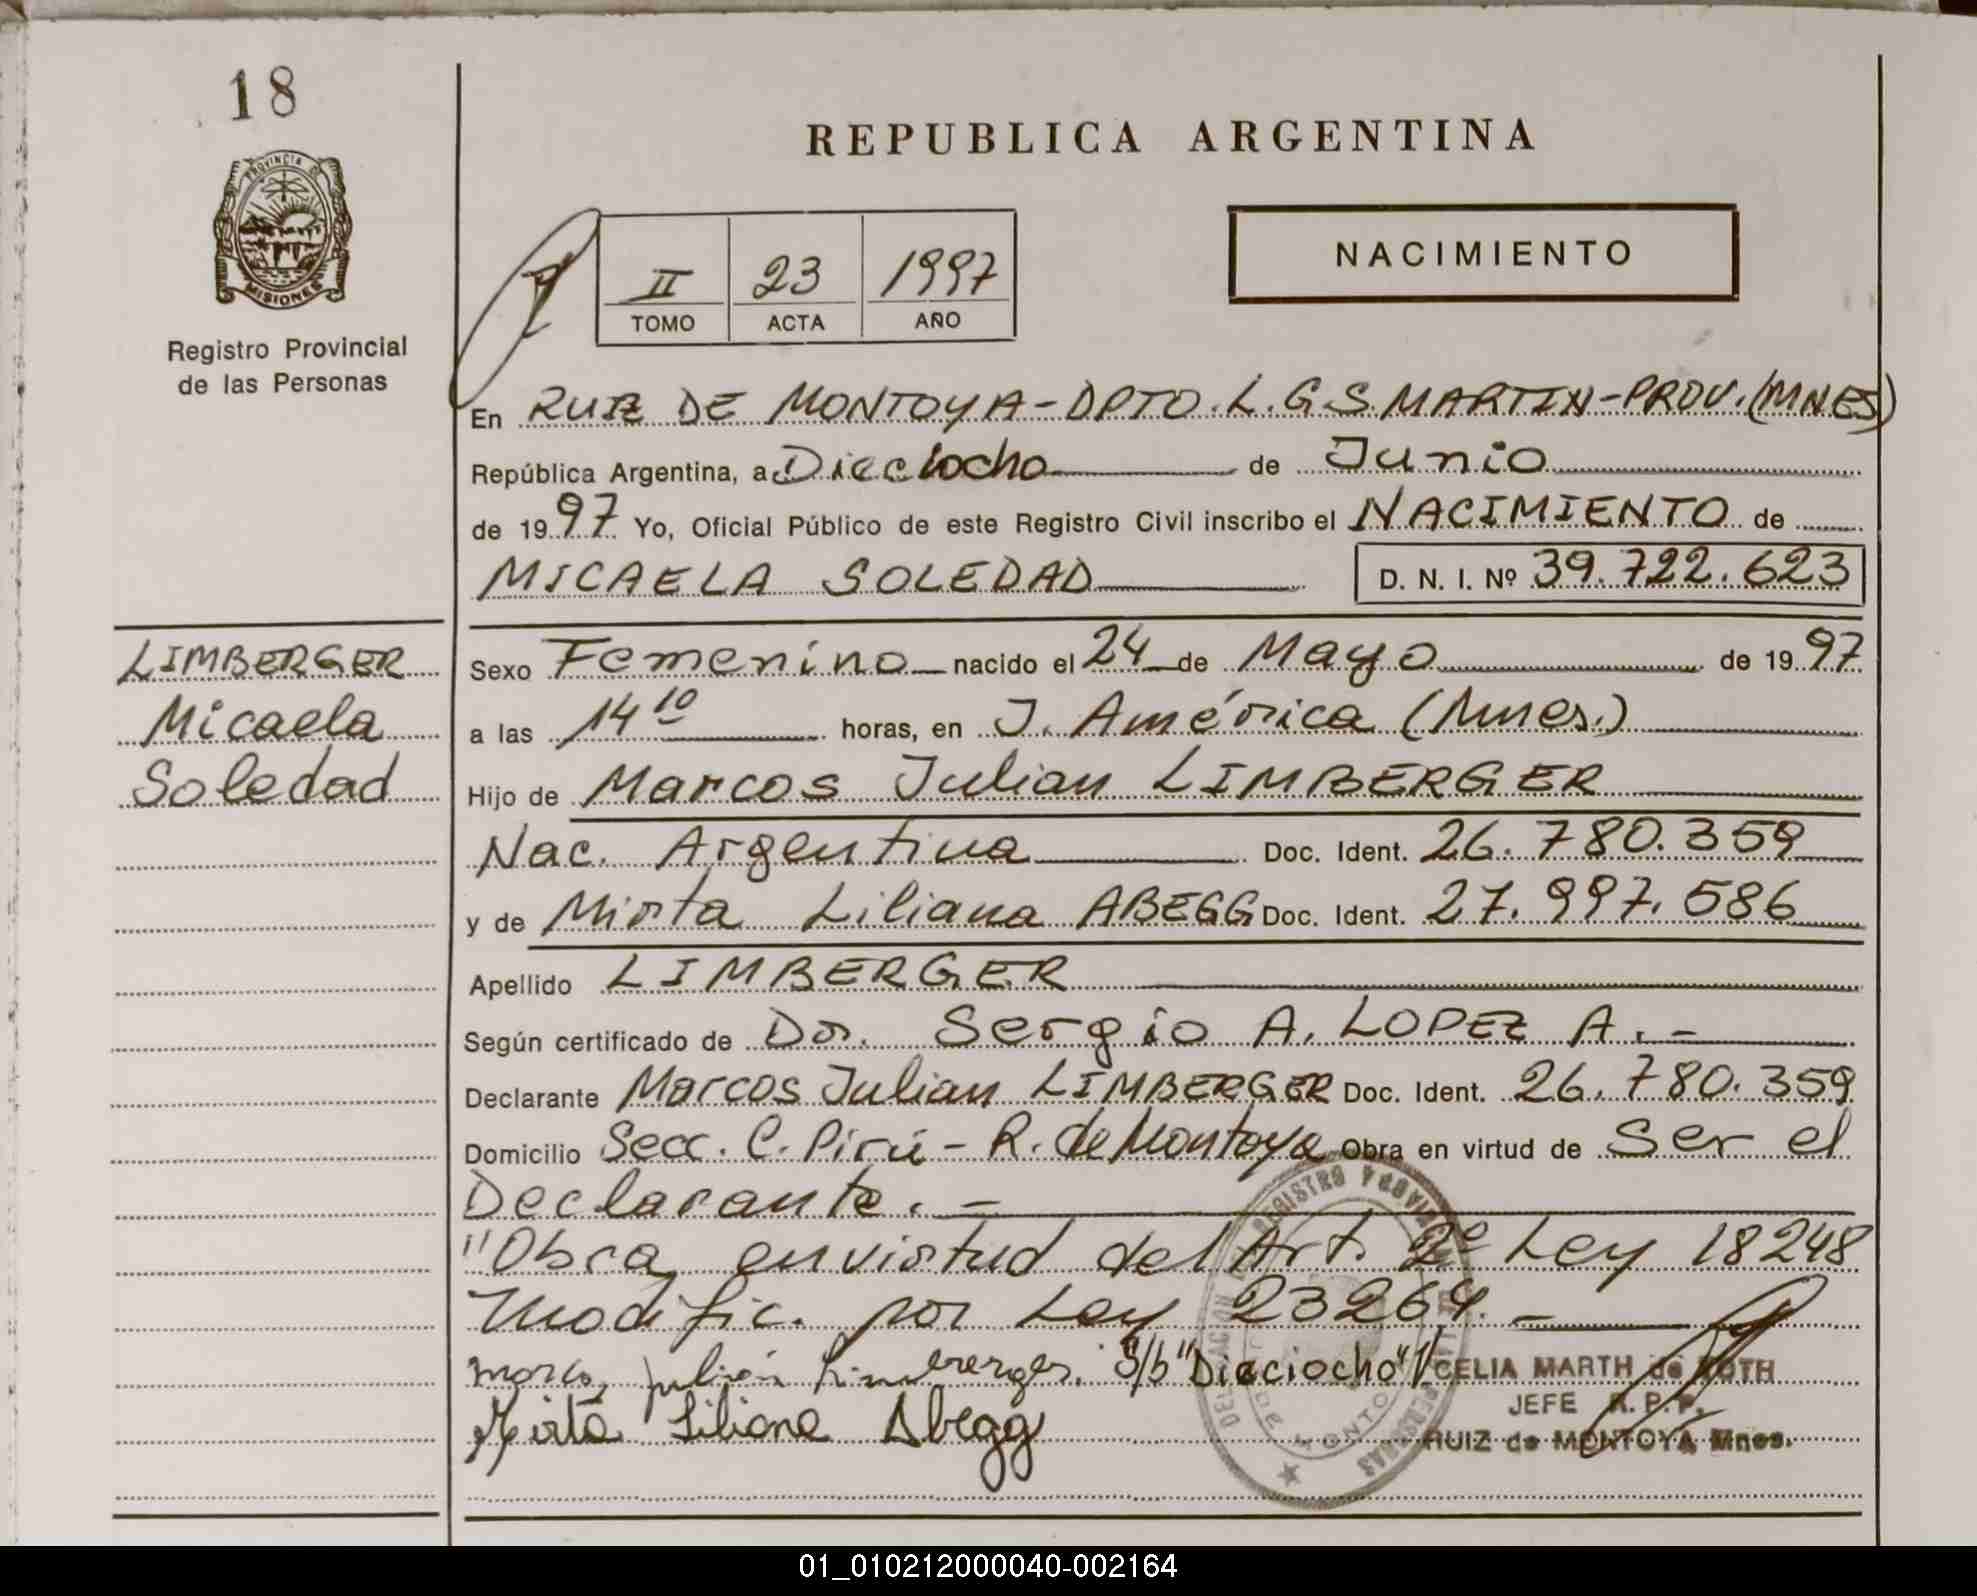 18
REPUBLICA ARGENTINA
PROVINCIA DE
MISIONES
Registro Provincial
de las Personas
II 23 1997
TOMO ACTA AÑO
NACIMIENTO
En RUIZ DE MONTOYA-DPTO.L.G.S.MARTIN-PROV.(MNES)
República Argentina, a Dieciocho de Junio
de 1997 Yo, Oficial Público de este Registro Civil inscribo el NACIMIENTO de
MICAELA SOLEDAD D. N. I. Nº 39.722.623
LIMBERGER
Micaela
Soledad
Sexo Femenino nacido el 24 de Mayo de 1997
a las 14 10 horas, en J. América (Mnes.)
Hijo de Marcos Julian LIMBERGER
Nac. Argentina Doc. Ident. 26.780.359
y de Mirta Liliana ABEGG Doc. Ident. 27.997.586
Apellido LIMBERGER
Según certificado de Dr. Sergio A. LOPEZ A.-
Declarante Marcos Julian LIMBERGER Doc. Ident. 26.780.359
Domicilio Secc. C. Pirú - R. de Montoya Obra en virtud de Ser el
Declarante.-
"Obra en virtud del Art. 2º Ley 18248
Modific. por Ley 23264.-
Marcos julián Limberger. S/b "Dieciocho"
Mirta Liliana Abegg
CELIA MARTH de ROTH
JEFE R.P.P.
RUIZ de MONTOYA Mnes.
01_010212000040-002164